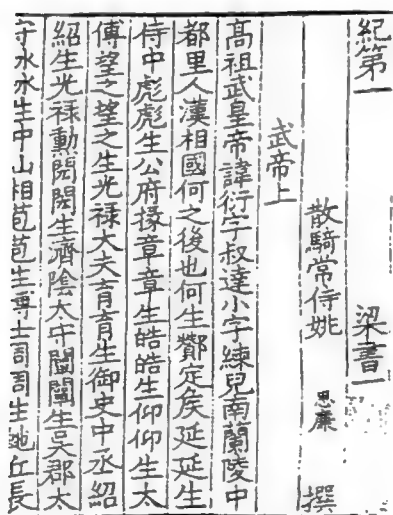 紀第一 梁書一
散騎常侍姚 思廉 撰
武帝上
髙祖武皇帝諱衍字叔達小字練兒南蘭陵中
都里人漢相國何之後也何生酇定侯延延生
侍中彪彪生公府掾章章生皓皓生仰仰生太
傅望之望之生光禄大夫育育生御史中丞紹
紹生光禄勳閎閎生濟陰太守闡闡生吳郡太
守氷氷生中山相苞苞生博士周周生虵丘長